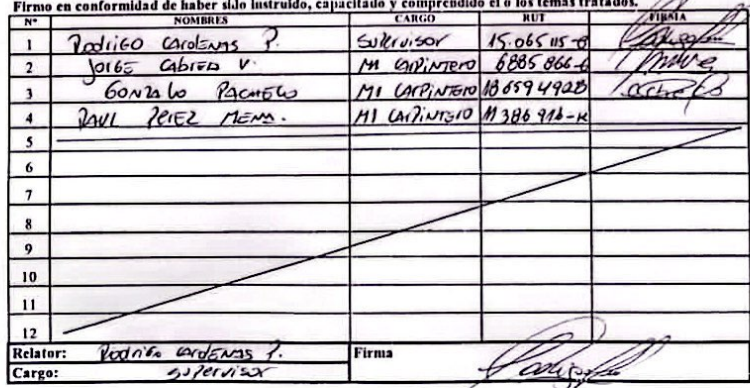 Firmo en conformidad de haber sido instruido, capacitado y comprendido el o los temas tratados.
N° NOMBRES CARGO RUT FIRMA
1 Rodrigo Cardenas P. Supervisor 15.065 115-8
2 Jorge Cabrera V. M1 Carpintero 6885 866-6
3 Gonzalo Pacheco M1 Carpintero 18659492
4 Paul Perez Mena. M1 Carpintero 11 386 916-K
5
6
7
8
9
10
11
12
Relator: Rodrigo Cardenas P. Firma
Cargo: Supervisor